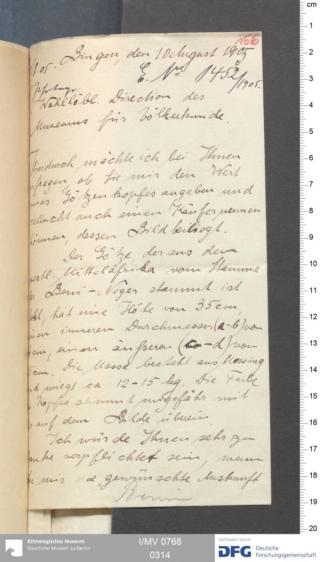 156
/05. Bingen, den 10 August 1905
E. No 1452/1905.
Wohllöbl. Direction des
Museums für Völkerkunde.
Hierdurch möchte ich bei Ihnen
anfragen ob Sie mir den Wert
eines Götzenkopfes angeben und
vielleicht auch einen Käufer nennen
können, dessen Bild beiliegt.
Der Götze, der aus dem
Mittelafrika vom Stamme
Beni-Neger stammt ist
hohl, hat eine Höhe von 35 cm.
inneren Durchmesser (a-b) von
cm, einen äußeren (c-d) von
cm. Die Masse besteht aus Messing
und wiegt ca 12-15 kg. Die Farbe
Kopfes stimmt ungefähr mit
auf dem Bilde überein
Ich würde Ihnen sehr zu
verpflichtet sein, wenn
mir die gewünschte Auskunft
cm
1
2
3
4
5
6
7
8
9
10
11
12
13
14
15
16
17
18
19
20
Ethnologisches Museum
Staatliche Museen zu Berlin
I/MV 0768
0314
Gefördert durch
DFG Deutsche
Forschungsgemeinschaft